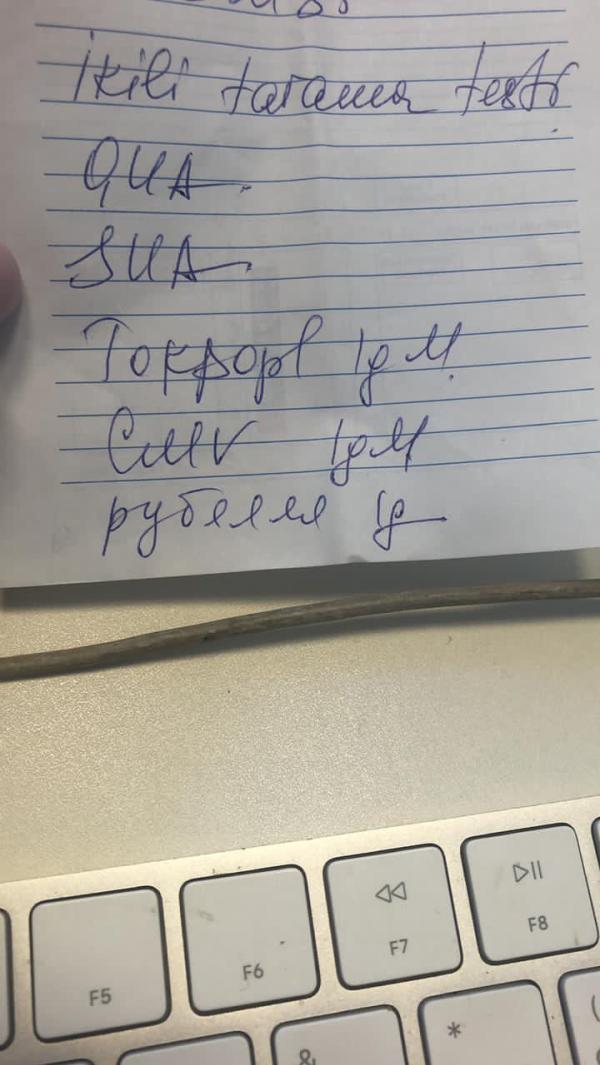 İkili tarama testi
QUA.
SUA.
Токфорl IgM.
CMV IgM
рубелля Ig
F5
F6
F7
F8
&
*
(